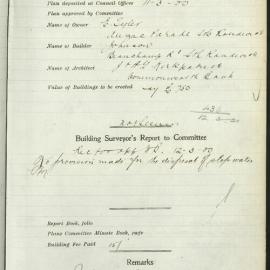 Plan deposited at Council Offices 11-3-20
Plan approved by Committee
Name of Owner E. Tyler
Parade Sth Randwick
Name of Builder Johnson
Beauchamp Rd Sth Randwick
Name of Architect J & H G Kirkpatrick
Commonwealth Bank
Value of Buildings to be erected say £ 750
12.3.20
Building Surveyor's Report to Committee
Rec for app 12-3-20
No provision made for the disposal of slop water
Report Book, folio
Plans Committee Minute Book, page
Building Fee Paid 15/
Remarks